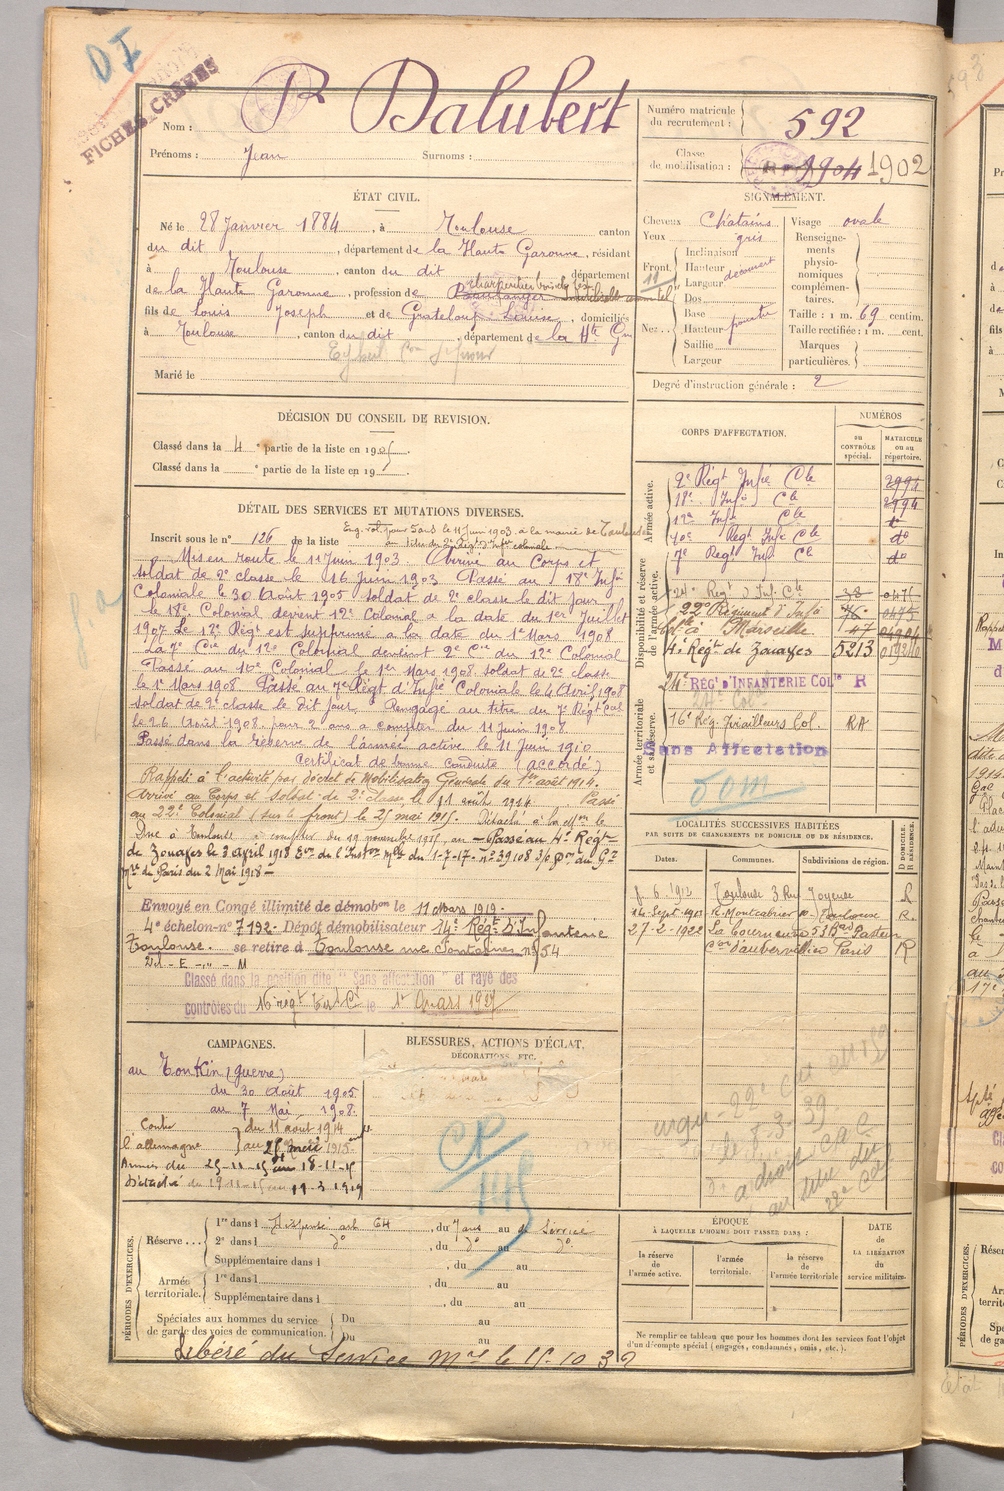 D I
FICHES CRÉÉES
Nom : R Dalubert
Prénoms : Jean Surnoms :
Numéro matricule du recrutement : 592
Classe de mobilisation : 1904 1902
ÉTAT CIVIL.
Né le 28 Janvier 1884, à Toulouse canton
du dit, département de la Haute Garonne, résidant
à Toulouse, canton du dit département
charpentier
de la Haute Garonne, profession de Boulanger
fils de Louis Joseph et de Grateloup Louise, domiciliés
à Toulouse, canton du dit, département de la Hte Gne
Marié le
SIGNALEMENT.
Cheveux Châtains Visage ovale
Yeux gris
Front. Inclinaison
Hauteur découvert
Largeur
Nez... Dos
Base
Hauteur pointu
Saillie
Largeur
Renseignements physionomiques complémentaires.
Taille : 1 m. 69 centim.
Taille rectifiée : 1 m. cent.
Marques particulières.
Degré d'instruction générale : 2
DÉCISION DU CONSEIL DE REVISION.
Classé dans la 4e partie de la liste en 1905.
Classé dans la e partie de la liste en 19
CORPS D'AFFECTATION.
NUMÉROS
au CONTRÔLE spécial.
MATRICULE ou au répertoire.
Armée active.
2e Régt Infie Cle 2994
18e Infie Cle 2994
12e Infie Cle do
10e Régt Inf Cle do
7e Régt Inf Cle do
Disponibilité et réserve de l'armée active.
24e Régt d'Inf. Cle 38 0475
22e Régiment d'Infie 76 0475
Cle à Marseille 47
4e Régt de Zouaves 5213
Armée territoriale et sa réserve.
24e RÉGt D'INFANTERIE COLle R
16e Rég. Tirailleurs Col. RA
Sans Affectation
DÉTAIL DES SERVICES ET MUTATIONS DIVERSES.
Eng. vol. pour 5 ans le 11 Juin 1903 à la mairie de Toulouse
au titre du 2e Régt d'Infie coloniale
Inscrit sous le n° 126 de la liste
Mis en route le 11 Juin 1903 Arrivé au Corps et
soldat de 2e classe le 16 Juin 1903 Passé au 18e Infie
Coloniale le 30 Août 1905 soldat de 2e classe le dit jour.
le 18e Colonial devient 12e Colonial à la date du 1er Juillet
1907 Le 12e Régt est supprimé à la date du 1er Mars 1908
La 7e Cie du 12e Colonial devient 2e Cie du 12e Colonial
Passé au 10e Colonial le 1er Mars 1908 soldat de 2e classe
le 1er Mars 1908 Passé au 7e Régt d'Infie Coloniale le 4 Avril 1908
soldat de 2e classe le dit jour. Rengagé au titre du 7e Régt Col
le 26 Août 1908 pour 2 ans à compter du 11 Juin 1908
Passé dans la réserve de l'armée active le 11 Juin 1910
Certificat de bonne conduite (accordé)
Rappelé à l'activité par décret de Mobilisation Générale du 1er août 1914.
Arrivé au Corps et soldat de 2e classe le 11 août 1914. Passé
au 22e Colonial (sur le front) le 25 mai 1915. Détaché à la Mon le
à Toulouse à compter du 19 novembre 1915, au — Passé au 4e Régt
de Zouaves le 3 avril 1918 Eon de l'Inston Mlle du 1-7-17- no 39108 3/6 pon du Gal
Mre de Paris du 2 Mai 1918 —
Envoyé en Congé illimité de démobon le 11 Mars 1919.
4e échelon-n° 7192. Dépôt démobilisateur 14e Régt d'Infanterie
Toulouse. se retire à Toulouse rue Fontaines n° 54
Classé dans la position dite "Sans affectation" et rayé des
contrôles du 16 régt le 1er Mars 1927
LOCALITÉS SUCCESSIVES HABITÉES
PAR SUITE DE CHANGEMENTS DE DOMICILE OU DE RÉSIDENCE.
Dates. Communes. Subdivisions de région. D DOMICILE. R RÉSIDENCE.
8. 6. 1912 Toulouse 3 Rue Joyeuse R
14 Sept. 1912 R. Montcabrier 10 Toulouse R.
27-2-1922 La Courneuve 53 Bard Pasteur
Con d'Aubervilliers Paris R
CAMPAGNES.
au Tonkin (guerre)
du 30 Août 1905
au 7 Mai 1908.
Contre l'allemagne du 11 août 1914
au 25 mai 1915
Armées du 25-11-15 au 18-11-15
Détaché du 19-11-15 au 11-3-1919
BLESSURES, ACTIONS D'ÉCLAT,
DÉCORATIONS, ETC.
PÉRIODES D'EXERCICES.
Réserve... 1re dans l Dispensé art 64, du 7 ans au de Service
2e dans l do, du do au do
Supplémentaire dans l, du au
Armée territoriale. 1re dans l, du au
Supplémentaire dans l, du au
Spéciales aux hommes du service de garde des voies de communication. Du au
Du au
Libéré du Service Mre le 15-10 32
ÉPOQUE
À LAQUELLE L'HOMME DOIT PASSER DANS :
la réserve de l'armée active.
l'armée territoriale.
la réserve de l'armée territoriale
DATE DE LA LIBÉRATION du service militaire.
Ne remplir ce tableau que pour les hommes dont les services font l'objet
d'un décompte spécial (engagés, condamnés, omis, etc.).